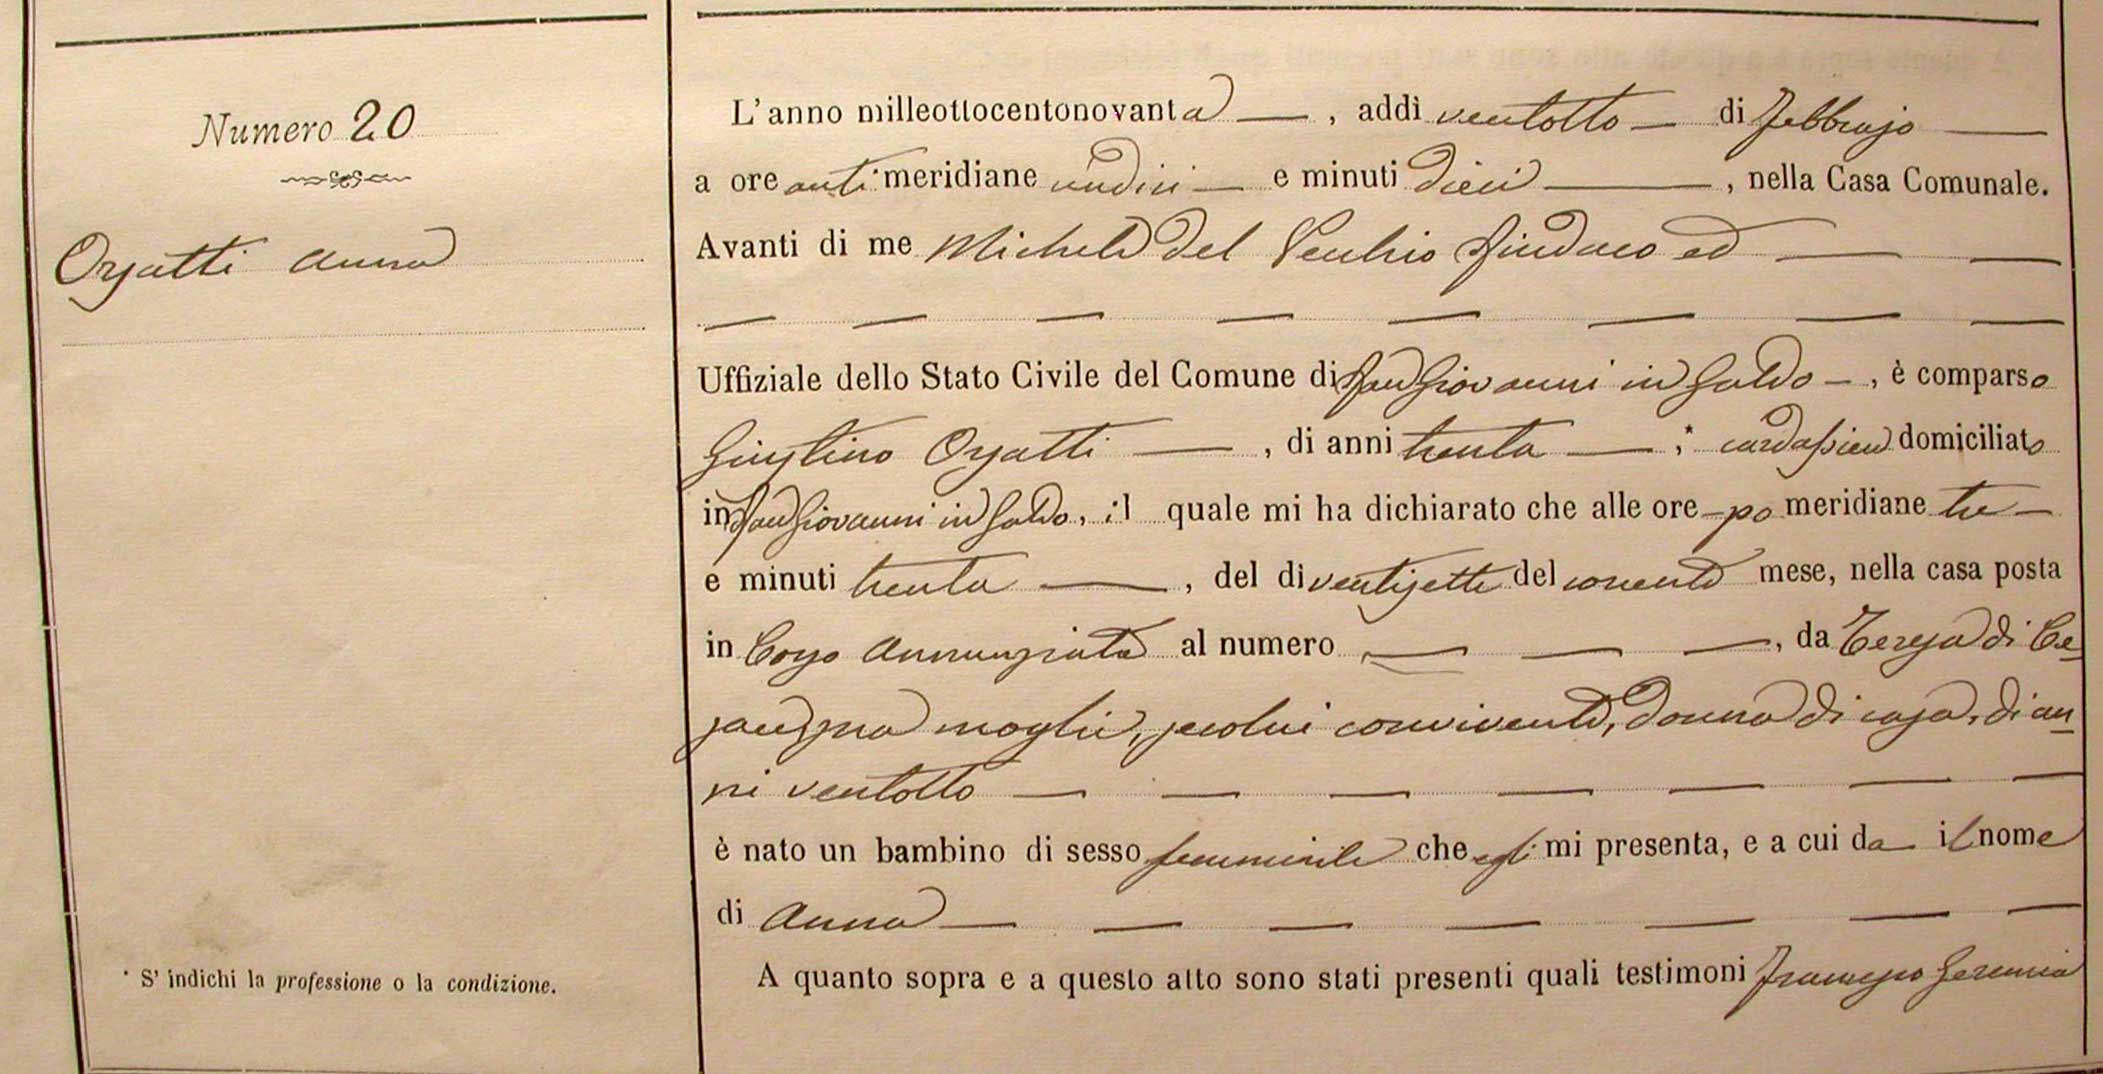 Numero 20
Orsatti Anna
L'anno milleottocentonovanta, addì ventotto di Febbrajo
a ore antimeridiane undici e minuti dieci, nella Casa Comunale.
Avanti di me Michele del Vecchio Sindaco ed
Uffiziale dello Stato Civile del Comune di San Giovanni in Galdo, è comparso
Giustino Orsatti, di anni trenta, * domiciliato
in San Giovanni in Galdo, il quale mi ha dichiarato che alle ore po meridiane tre
e minuti trenta, del dì ventisette del corrente mese, nella casa posta
in Corso Annunziata al numero, da Teresa di Ce-
sare sua moglie, secolui convivente, donna di casa, di an-
ni ventotto
è nato un bambino di sesso femminile che egli mi presenta, e a cui da il nome
di Anna
A quanto sopra e a questo atto sono stati presenti quali testimoni Francesco Geremia
* S' indichi la professione o la condizione.